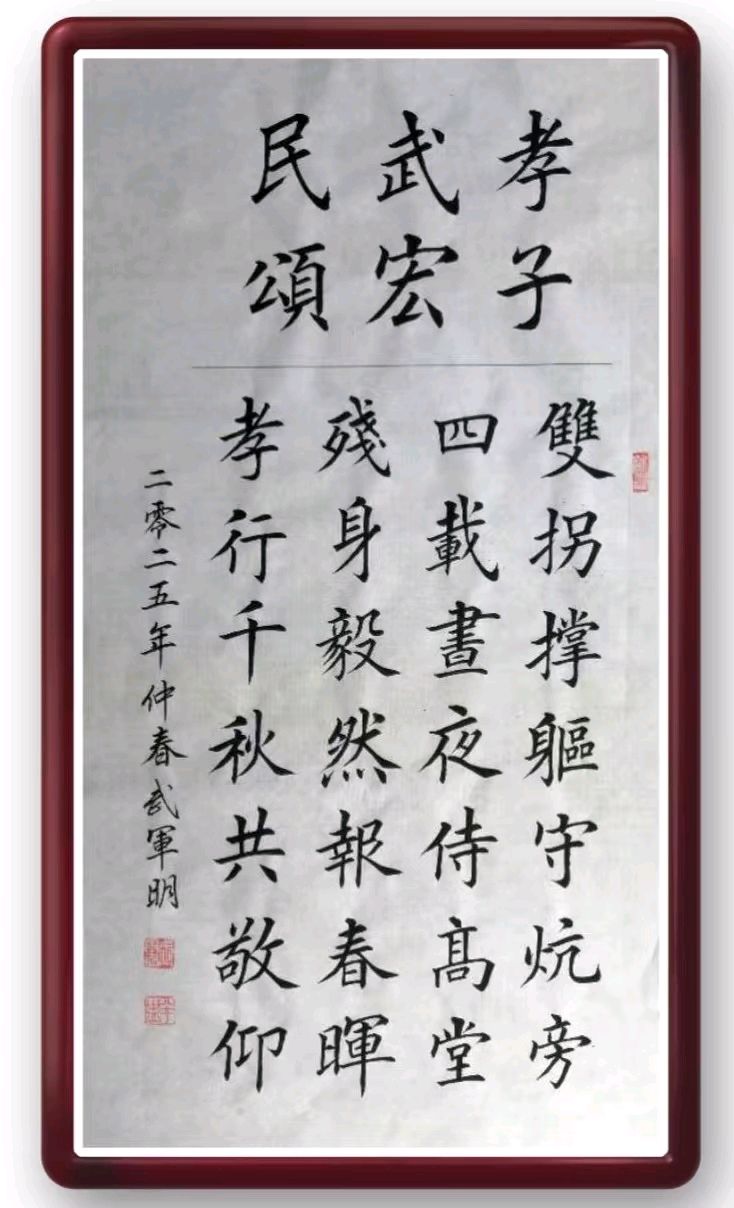 孝子
武宏
民頌
雙拐撐軀守炕旁
四載晝夜侍高堂
殘身毅然報春暉
孝行千秋共敬仰
二零二五年仲春武軍明